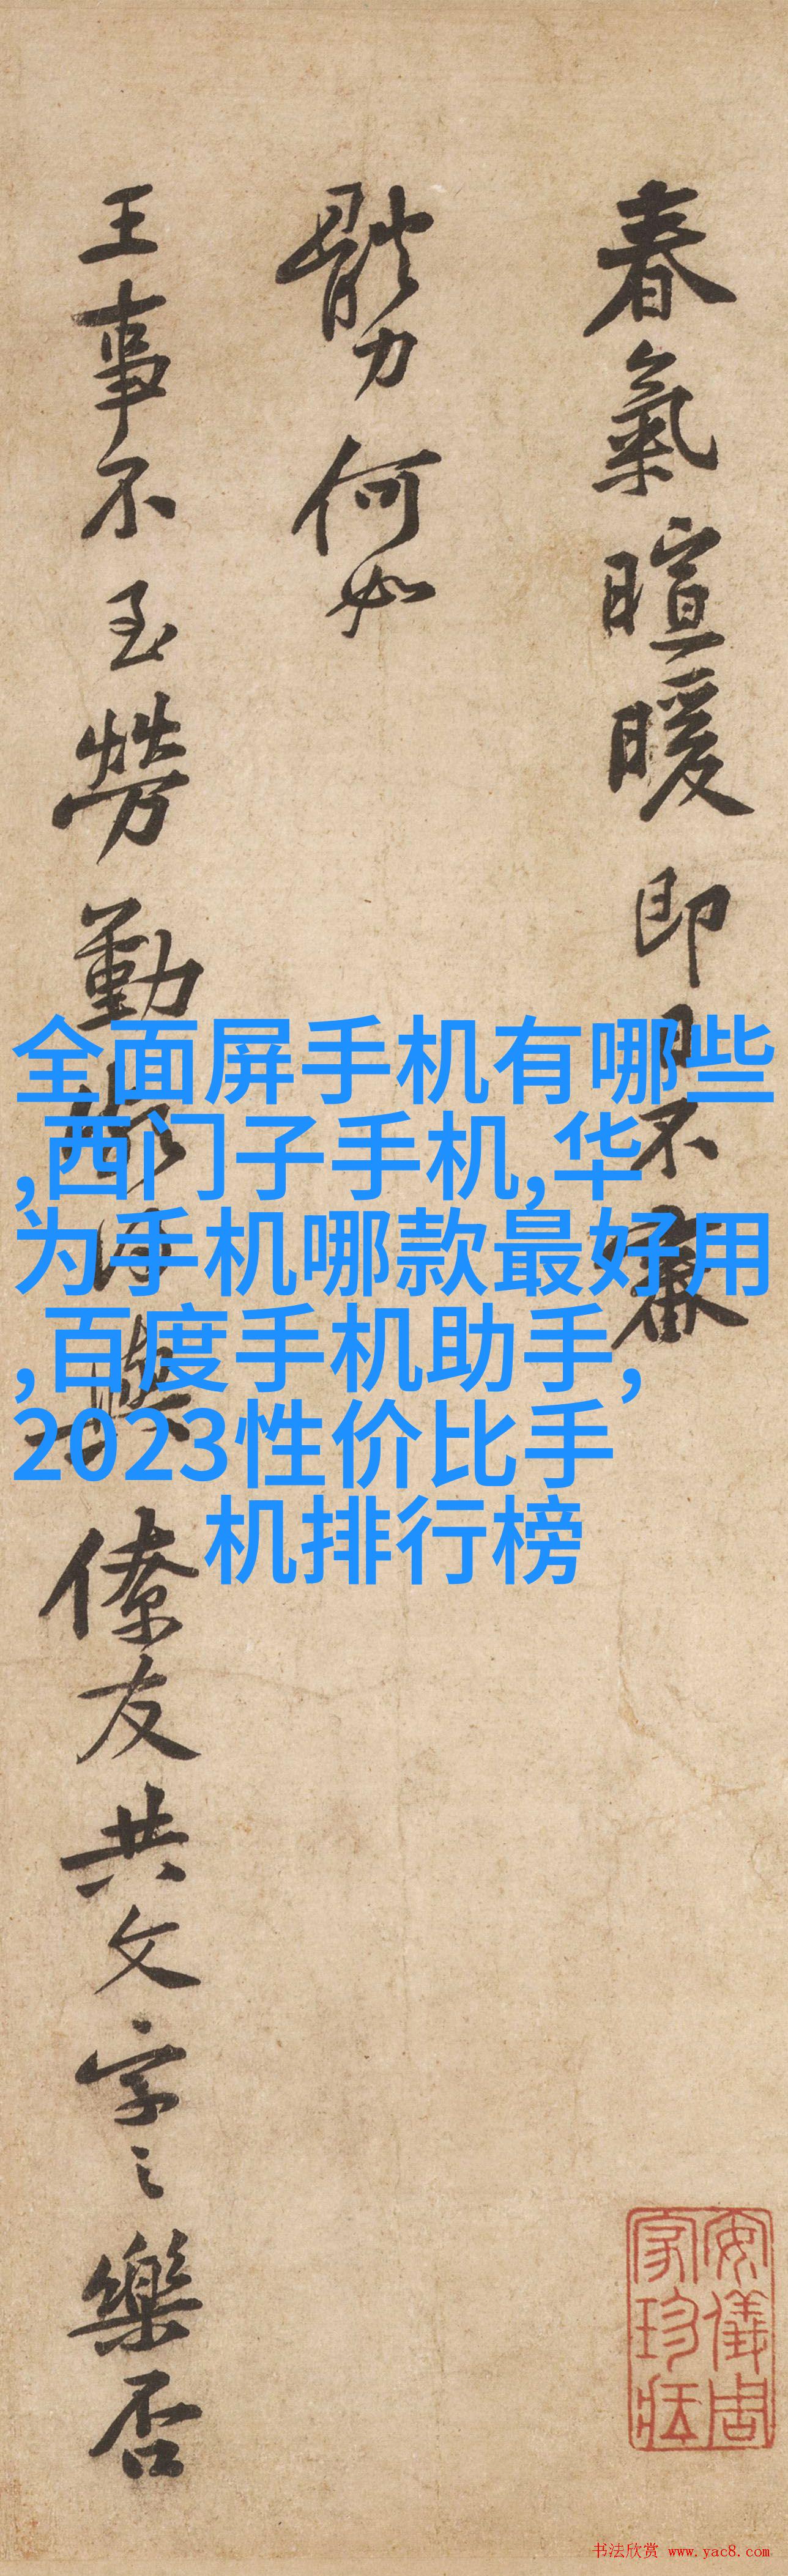 春氣暄暖即日不審
體力何如
王事不至勞勤
僚友共文字之樂否
全面屏手机有哪些
,西门子手机,华
为手机哪款最好用
,百度手机助手,
2023性价比手
机排行榜
安儀周家珍藏
书法欣赏 www.yac8.com